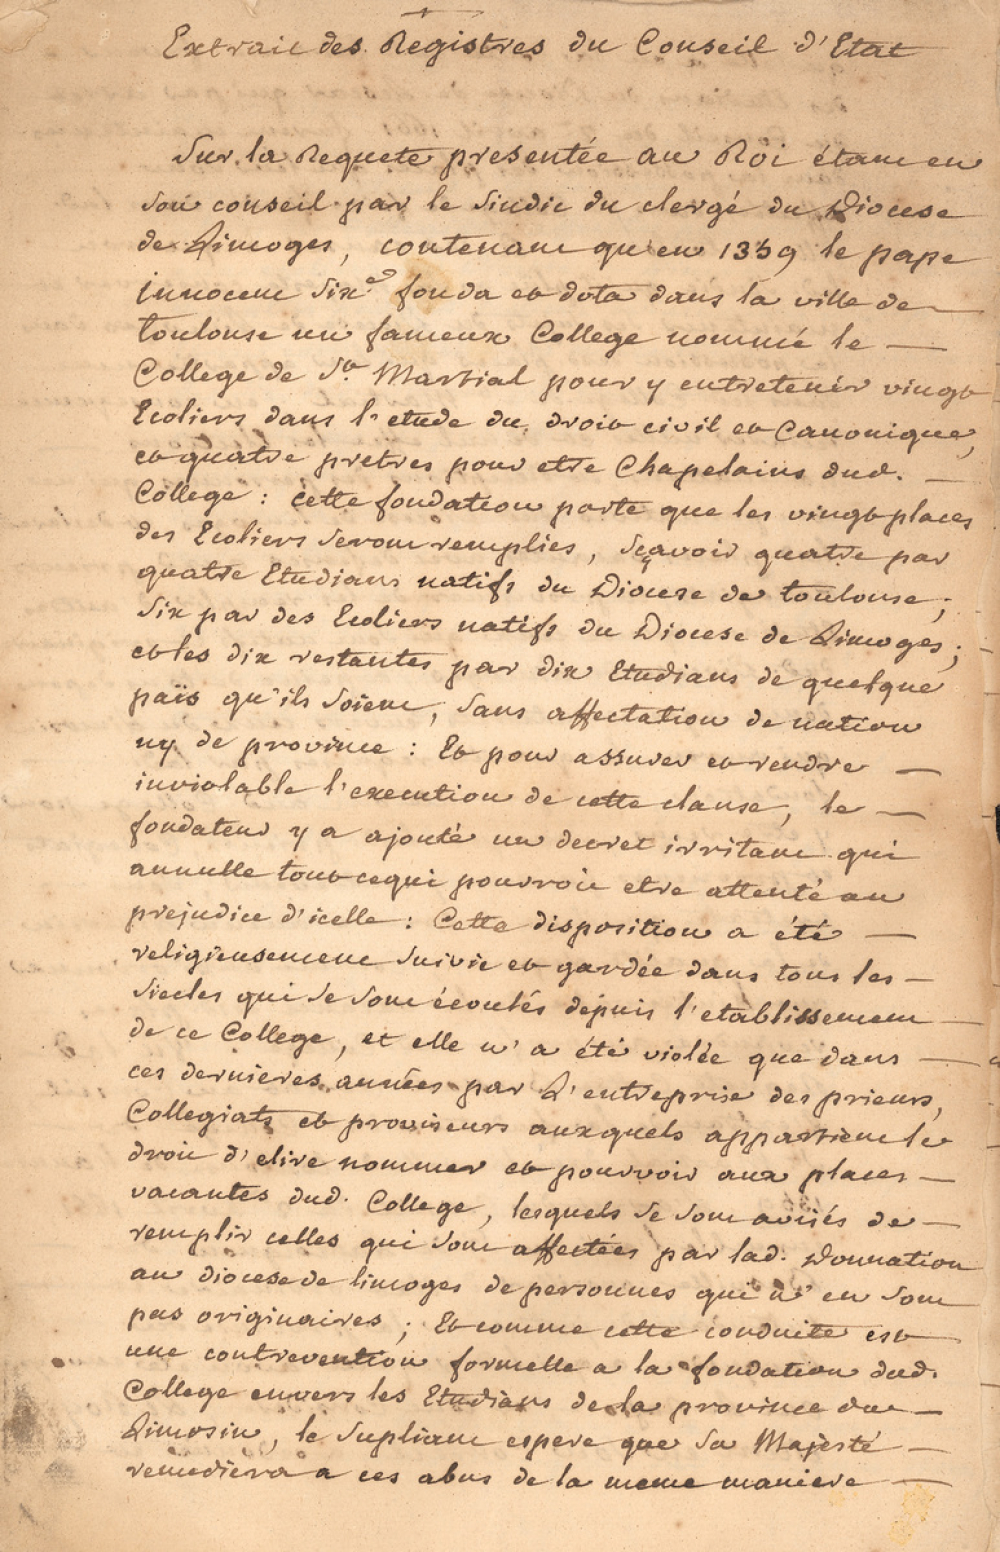 Extrait des Registres du Conseil d'Etat
Sur la Requete presentée au Roi étant en
son conseil par le Sindic du clergé du Diocese
de Limoges, contenant qu'en 1359 le pape
innocent Six.e fonda et dota dans la ville de
toulouse un fameux College nommé le
College de St. Martial pour y entretenir vingt
Ecoliers dans l'etude du droit civil et Canonique,
et quatre prètres pour etre Chapelains dud.
College : cette fondation porte que les vingt places
des Ecoliers seront remplies, sçavoir quatre par
quatre Etudians natifs du Diocese de toulouse ;
Six par des Ecoliers natifs du Diocese de Limoges ;
et les dix restantes par dix Etudians de quelque
païs qu'ils soient, sans affectation de nation
ny de province : Et pour assurer et rendre
inviolable l'execution de cette clause, le
fondateur y a ajouté un decret irritant qui
annulle tout ce qui pourroit etre attenté au
prejudice d'icelle : Cette disposition a été
religieusement suivie et gardée dans tous les
siecles qui se sont écoulés depuis l'etablissement
de ce College, et elle n'a été violée que dans
ces dernieres années par L'entreprise des prieurs,
Collegiats et proviseurs auxquels appartient le
droit d'elire nommer et pourvoir aux places
vacantes dud. College, lesquels se sont avisés de
remplir celles qui sont affectées par lad. Donnation
au diocese de limoges de personnes qui n'en sont
pas originaires ; Et comme cette conduite est
une contrevention formelle a la fondation dud.
College envers les Etudians de la province du
Limosin, le Supliant espere que Sa Majesté
remediera a ces abus de la meme maniere